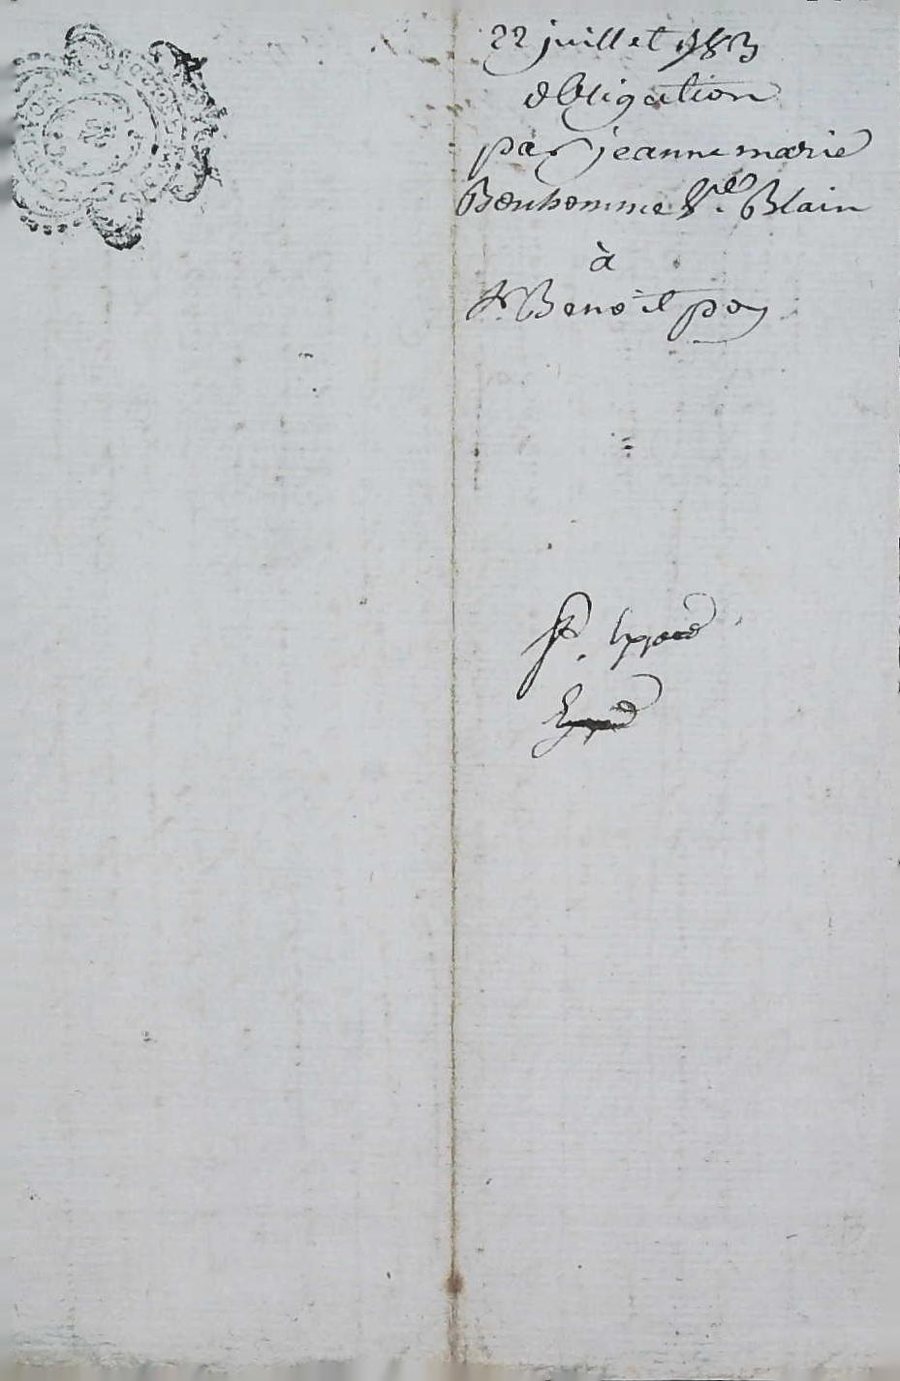 22 juillet 1783
obligation
par jeanne marie
Bonhomme Ve. Blain
à
Sr Benoit poy